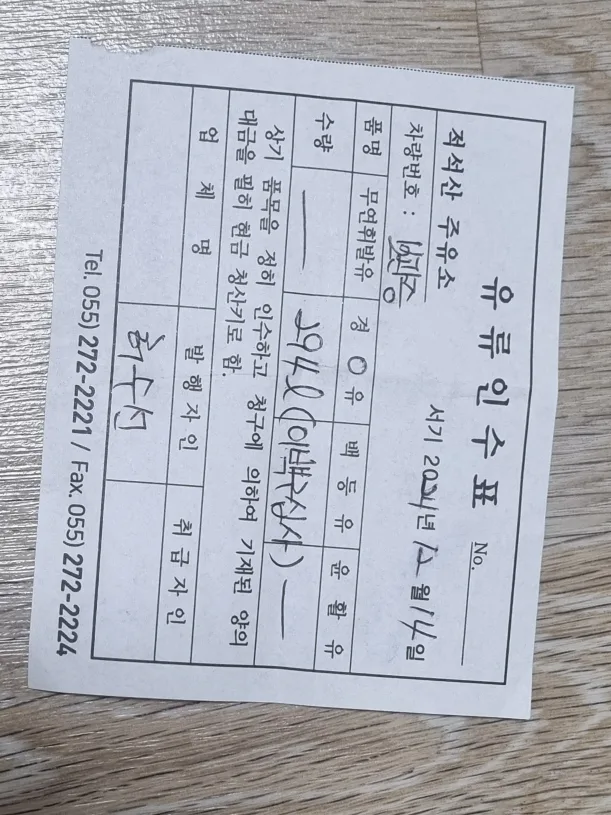 유류인수표
No.
서기 2021년 12월 14일
적석산 주유소
차량번호 :
품명 무연휘발유 경 유 백 등 유 윤 활 유
수량 — 294ℓ (이백구십사) —
상기 품목을 정히 인수하고 청구에 의하여 기재된 양의
대금을 필히 현금 청산키로 함.
업 체 명 발 행 자 인 취 급 자 인
Tel. 055) 272-2221 / Fax. 055) 272-2224